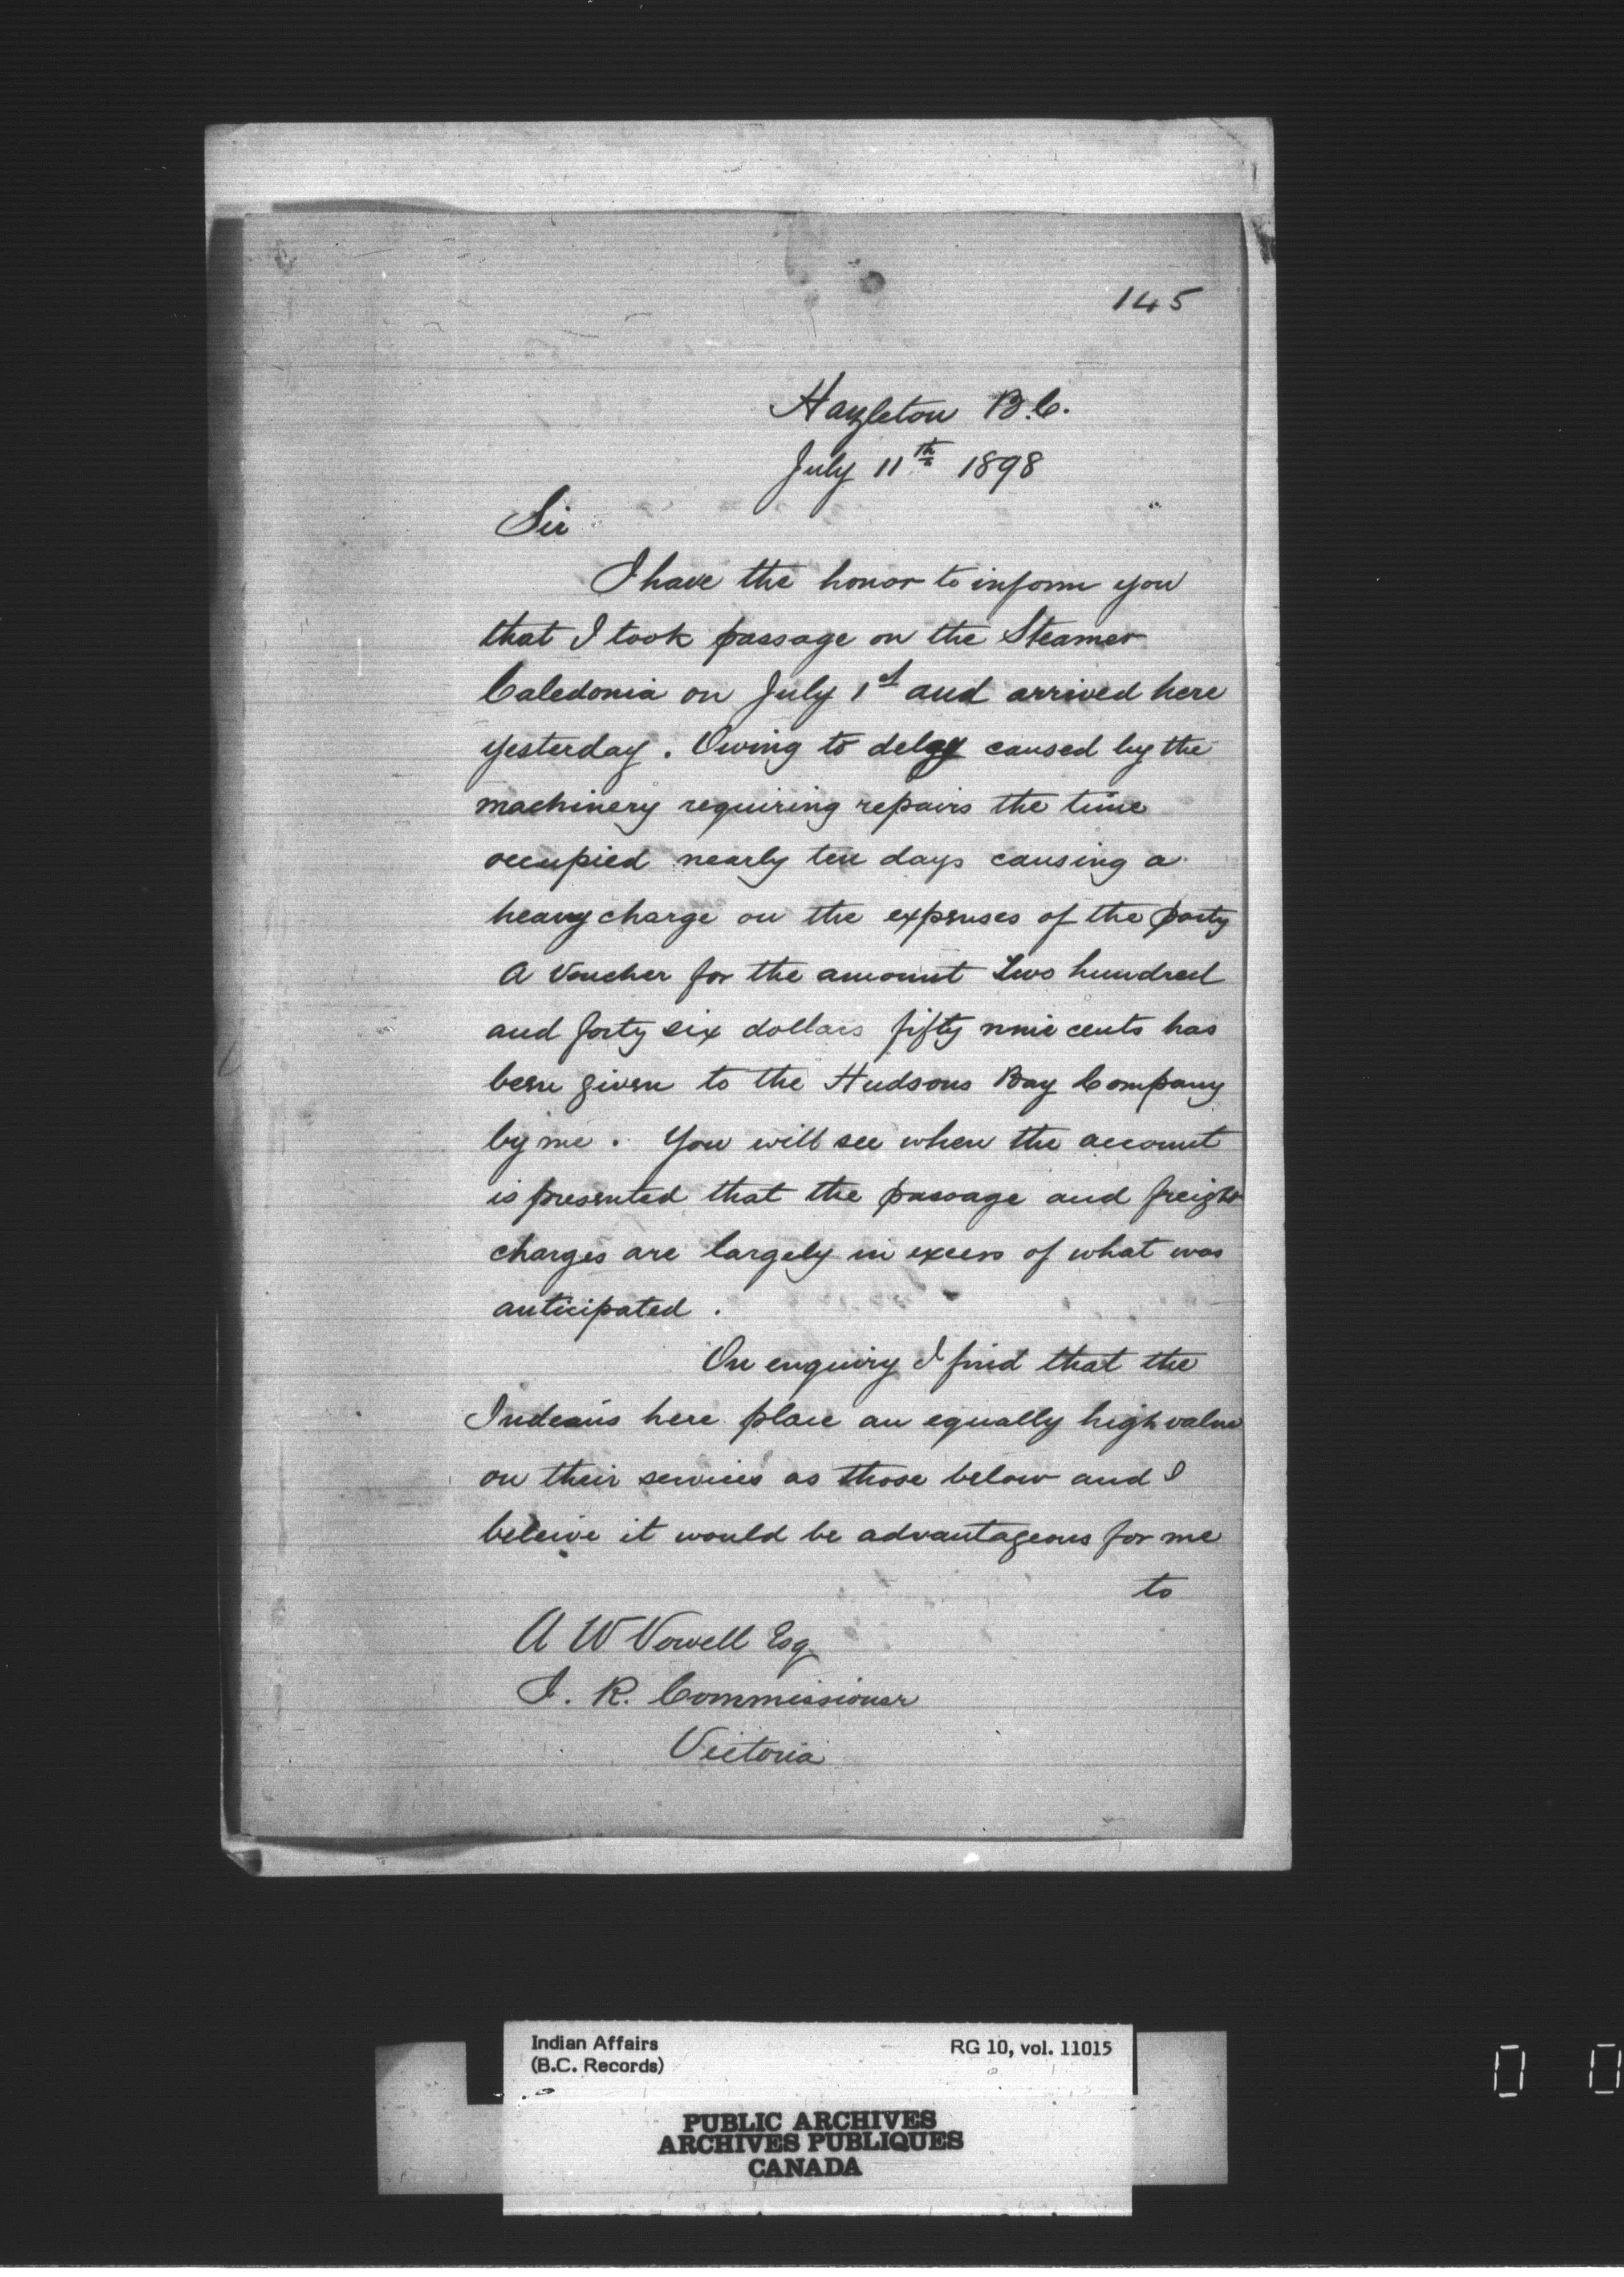 145
Hazleton B.C.
July 11th 1898
Sir
I have the honor to inform you
that I took passage on the Steamer
Caledonia on July 1st and arrived here
yesterday. Owing to delay caused by the
machinery requiring repairs the time
occupied nearly ten days causing a
heavy charge on the expenses of the party
A Voucher for the amount Two hundred
and forty six dollars fifty nine cents has
been given to the Hudsons Bay Company
by me. You will see when the account
is presented that the passage and freight
charges are largely in excess of what was
anticipated.
On enquiry I find that the
Indians here place an equally high value
on their services as those below and I
beleive it would be advantageous for me
to
A W Vowell Esq
I. R. Commissioner
Victoria
Indian Affairs
(B.C. Records)
RG 10, vol. 11015
PUBLIC ARCHIVES
ARCHIVES PUBLIQUES
CANADA
0 0